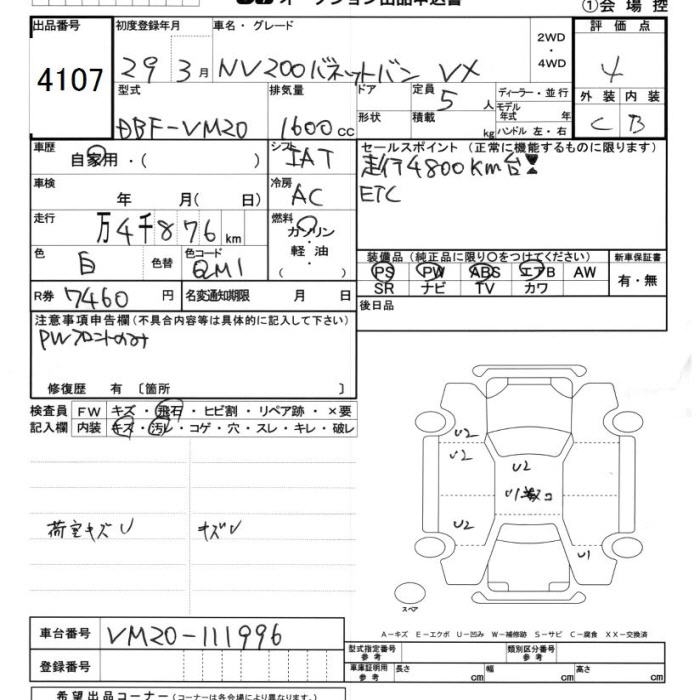 オークション出品申込書
①会場控
出品番号
4107
初度登録年月
29 3月
車名・グレード
NV200バネットバン VX
2WD
・
4WD
評価点
4
外装 内装
C B
型式
DBF-VM20
排気量
1600cc
ドア
形状
定員 5人
積載 kg
ディーラー・並行
モデル年式 年
ハンドル 左・右
車歴
自家用・( )
シフト
IAT
セールスポイント (正常に機能するものに限ります)
走行4800Km台
ETC
車検
年 月( 日)
冷房
AC
走行
万4千876km
燃料
ガソリン
・
軽油
( )
色
白
色替
色コード
QM1
装備品 (純正品に限り○をつけてください)
PS PW ABS エアB AW
SR ナビ TV カワ
新車保証書
有・無
R券 7460円
名変通知期限 月 日
後日品
注意事項申告欄 (不具合内容等は具体的に記入して下さい)
PWフロントのみ
修復歴 有〔箇所 〕
検査員
記入欄
FW キズ・飛石・ヒビ割・リペア跡・×要
内装 キズ・汚レ・コゲ・穴・スレ・キレ・破レ
荷室キズU
キズU
U2
U2
U2
U2
U1
スペア
A−キズ E−エクボ U−凹み W−補修跡 S−サビ C−腐食 XX−交換済
車台番号 VM20-111996
登録番号
型式指定番号
参考
類別区分番号
参考
車庫証明用
参考
長さ cm 幅 cm 高さ cm
希望出品コーナー (コーナーは各会場により異なります。)